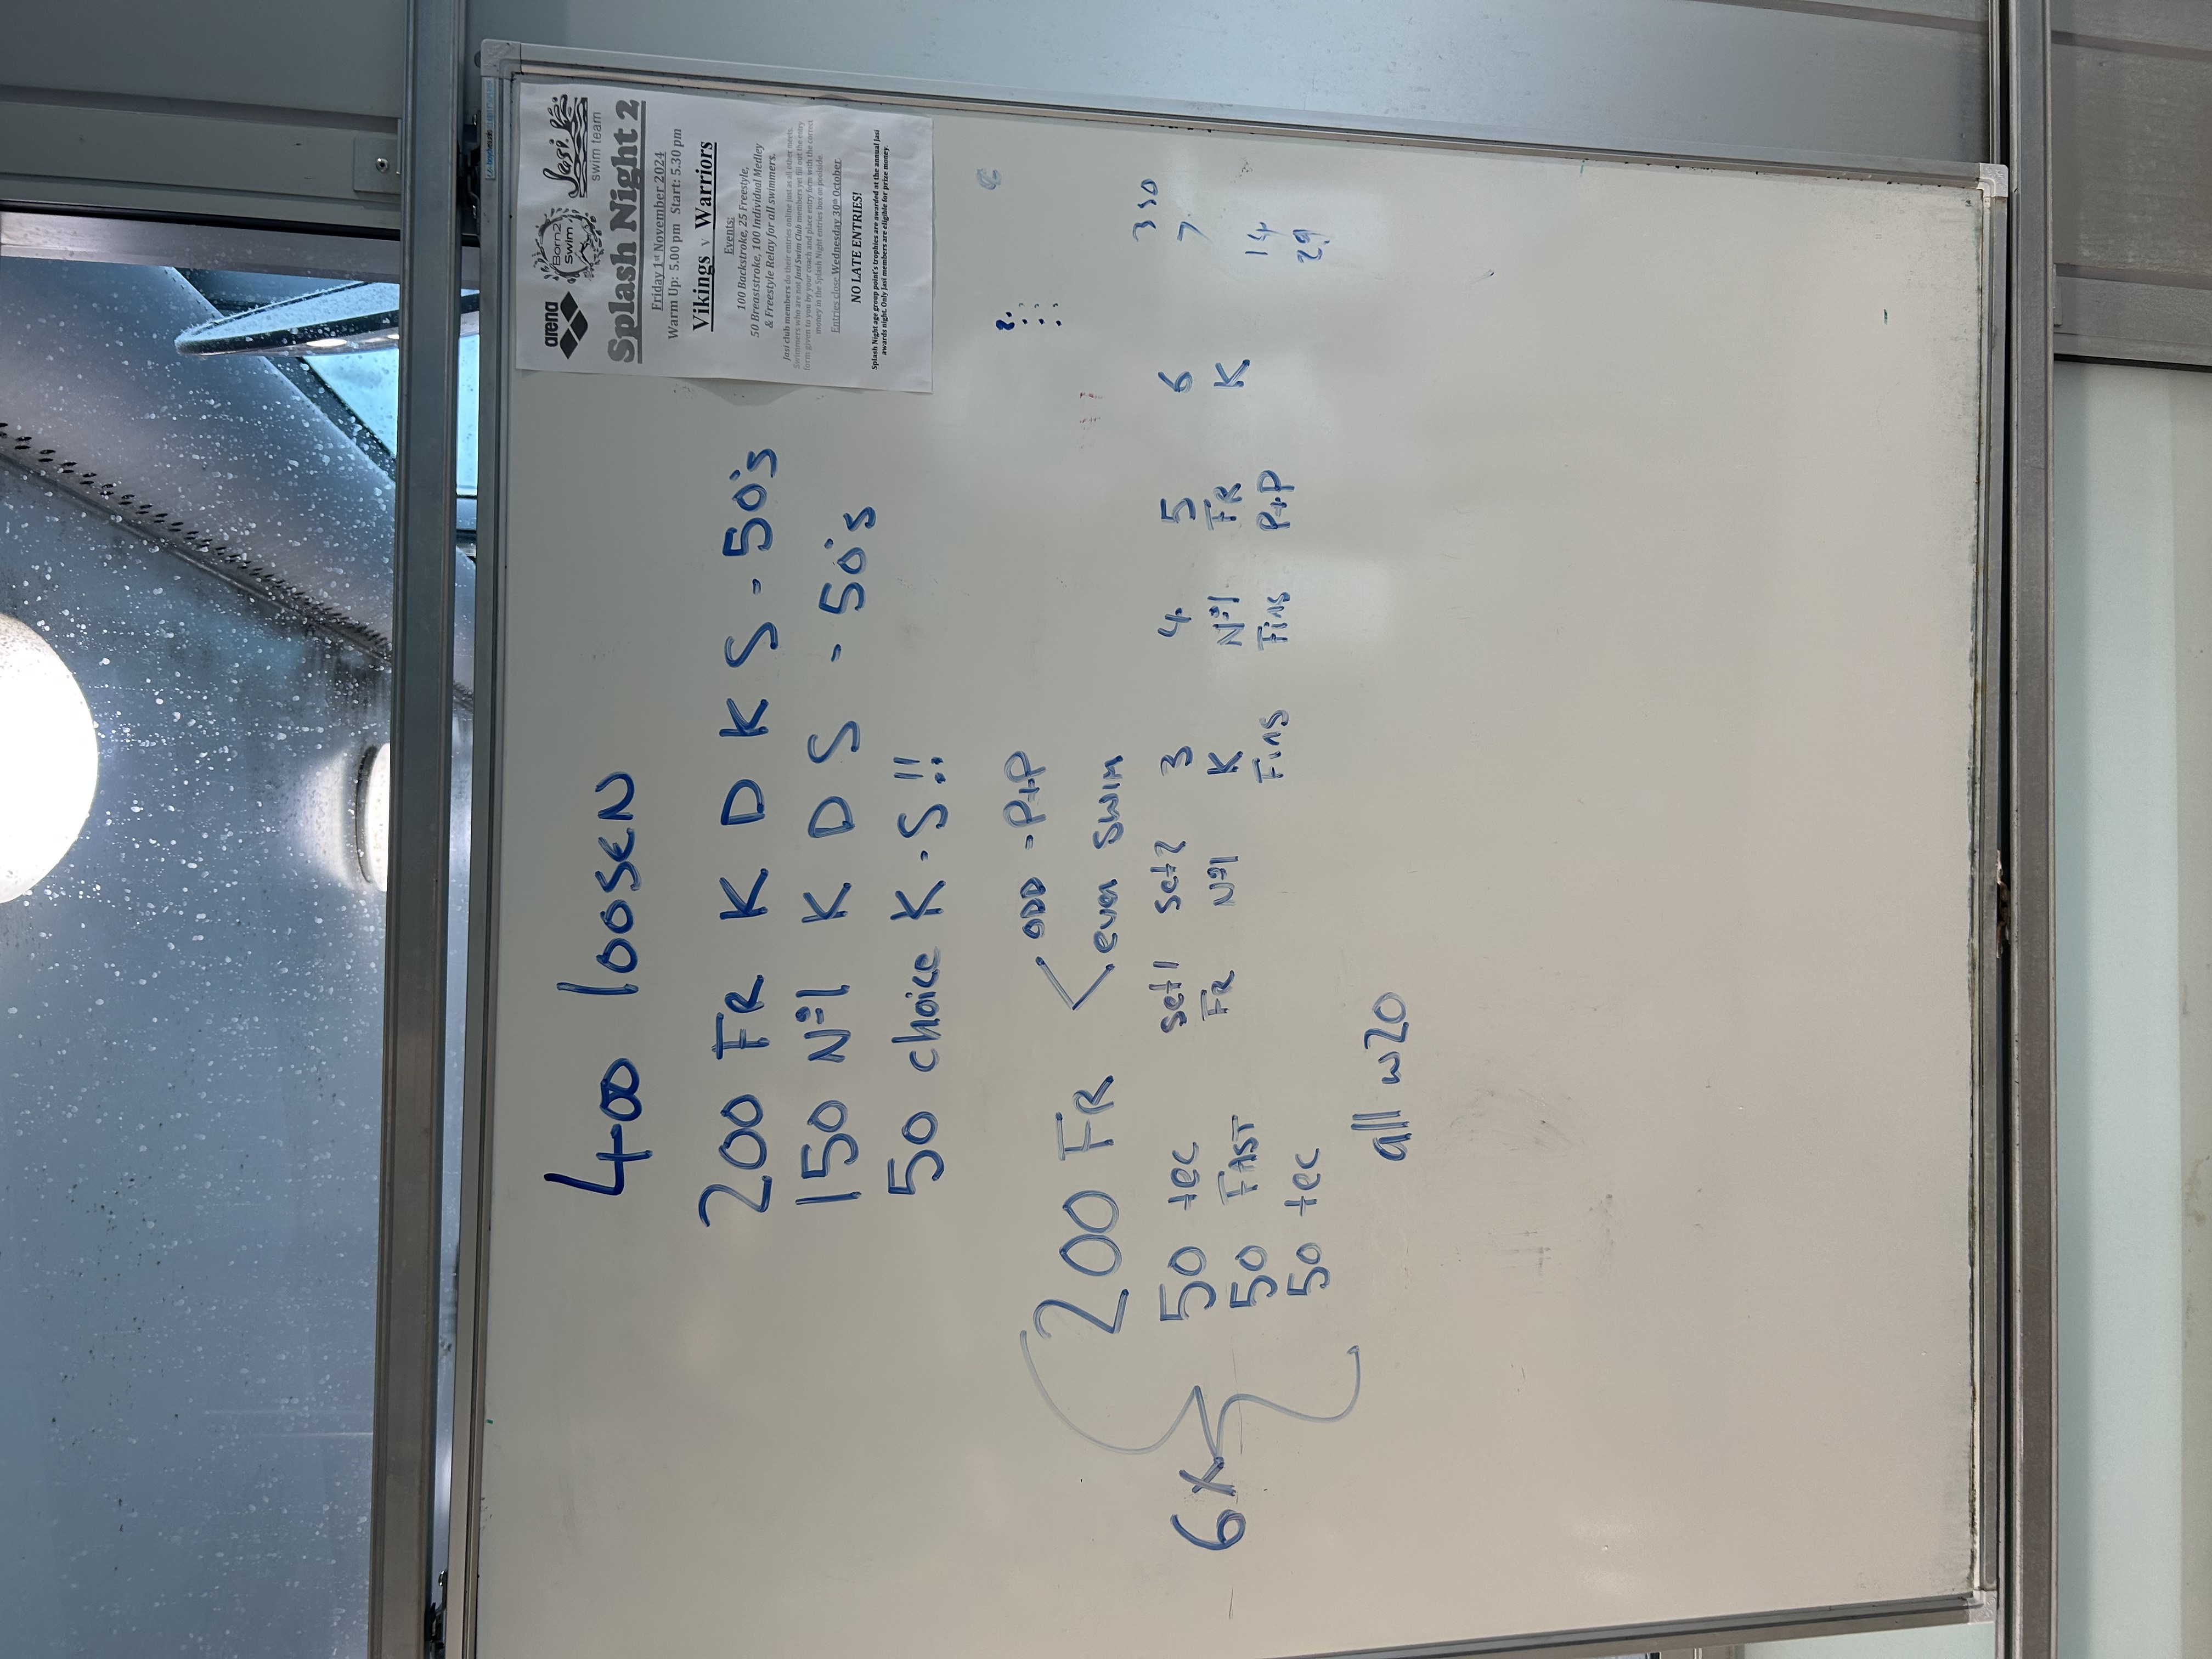 400 loosen
200 FR K D K S - 50's
150 Nº1 K D S - 50's
50 choice K - S!!
6x
200 FR < ODD - P+P
even swim
50 tec Set 1 Set 2 3 4 5 6
50 FAST FR Nº1 K Nº1 FR K
50 tec Fins Fins P+P
all w20
350
7
14
29
arena
Born2 Swim
Jasi
swim team
Splash Night 2
Friday 1st November 2024
Warm Up: 5.00 pm Start: 5.30 pm
Vikings v Warriors
Events:
100 Backstroke, 25 Freestyle,
50 Breaststroke, 100 Individual Medley
& Freestyle Relay for all swimmers.
Jasi club members do their entries online just as all other meets.
Swimmers who are not Jasi Swim Club members yet fill out the entry
form given to you by your coach and place entry form with the correct
money in the Splash Night entries box on poolside.
Entries close: Wednesday 30th October
NO LATE ENTRIES!
Splash Night age group point's trophies are awarded at the annual Jasi
awards night. Only Jasi members are eligible for prize money.